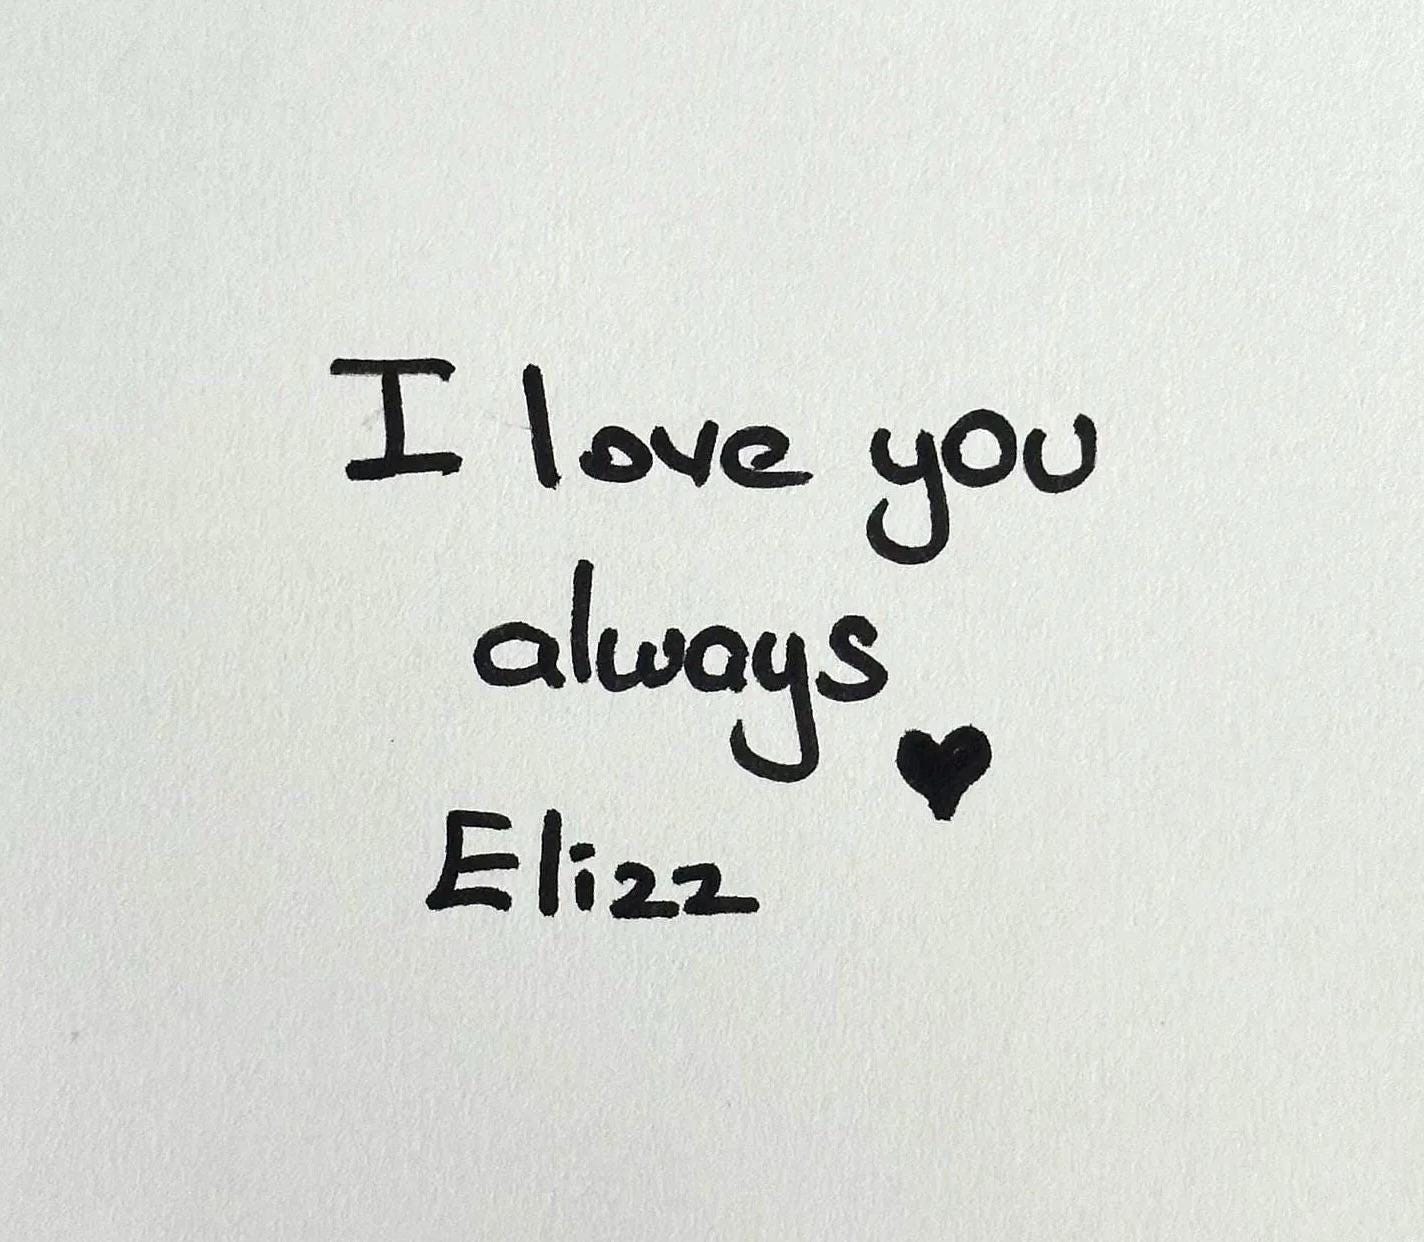 I love you
always
♥
Elizz